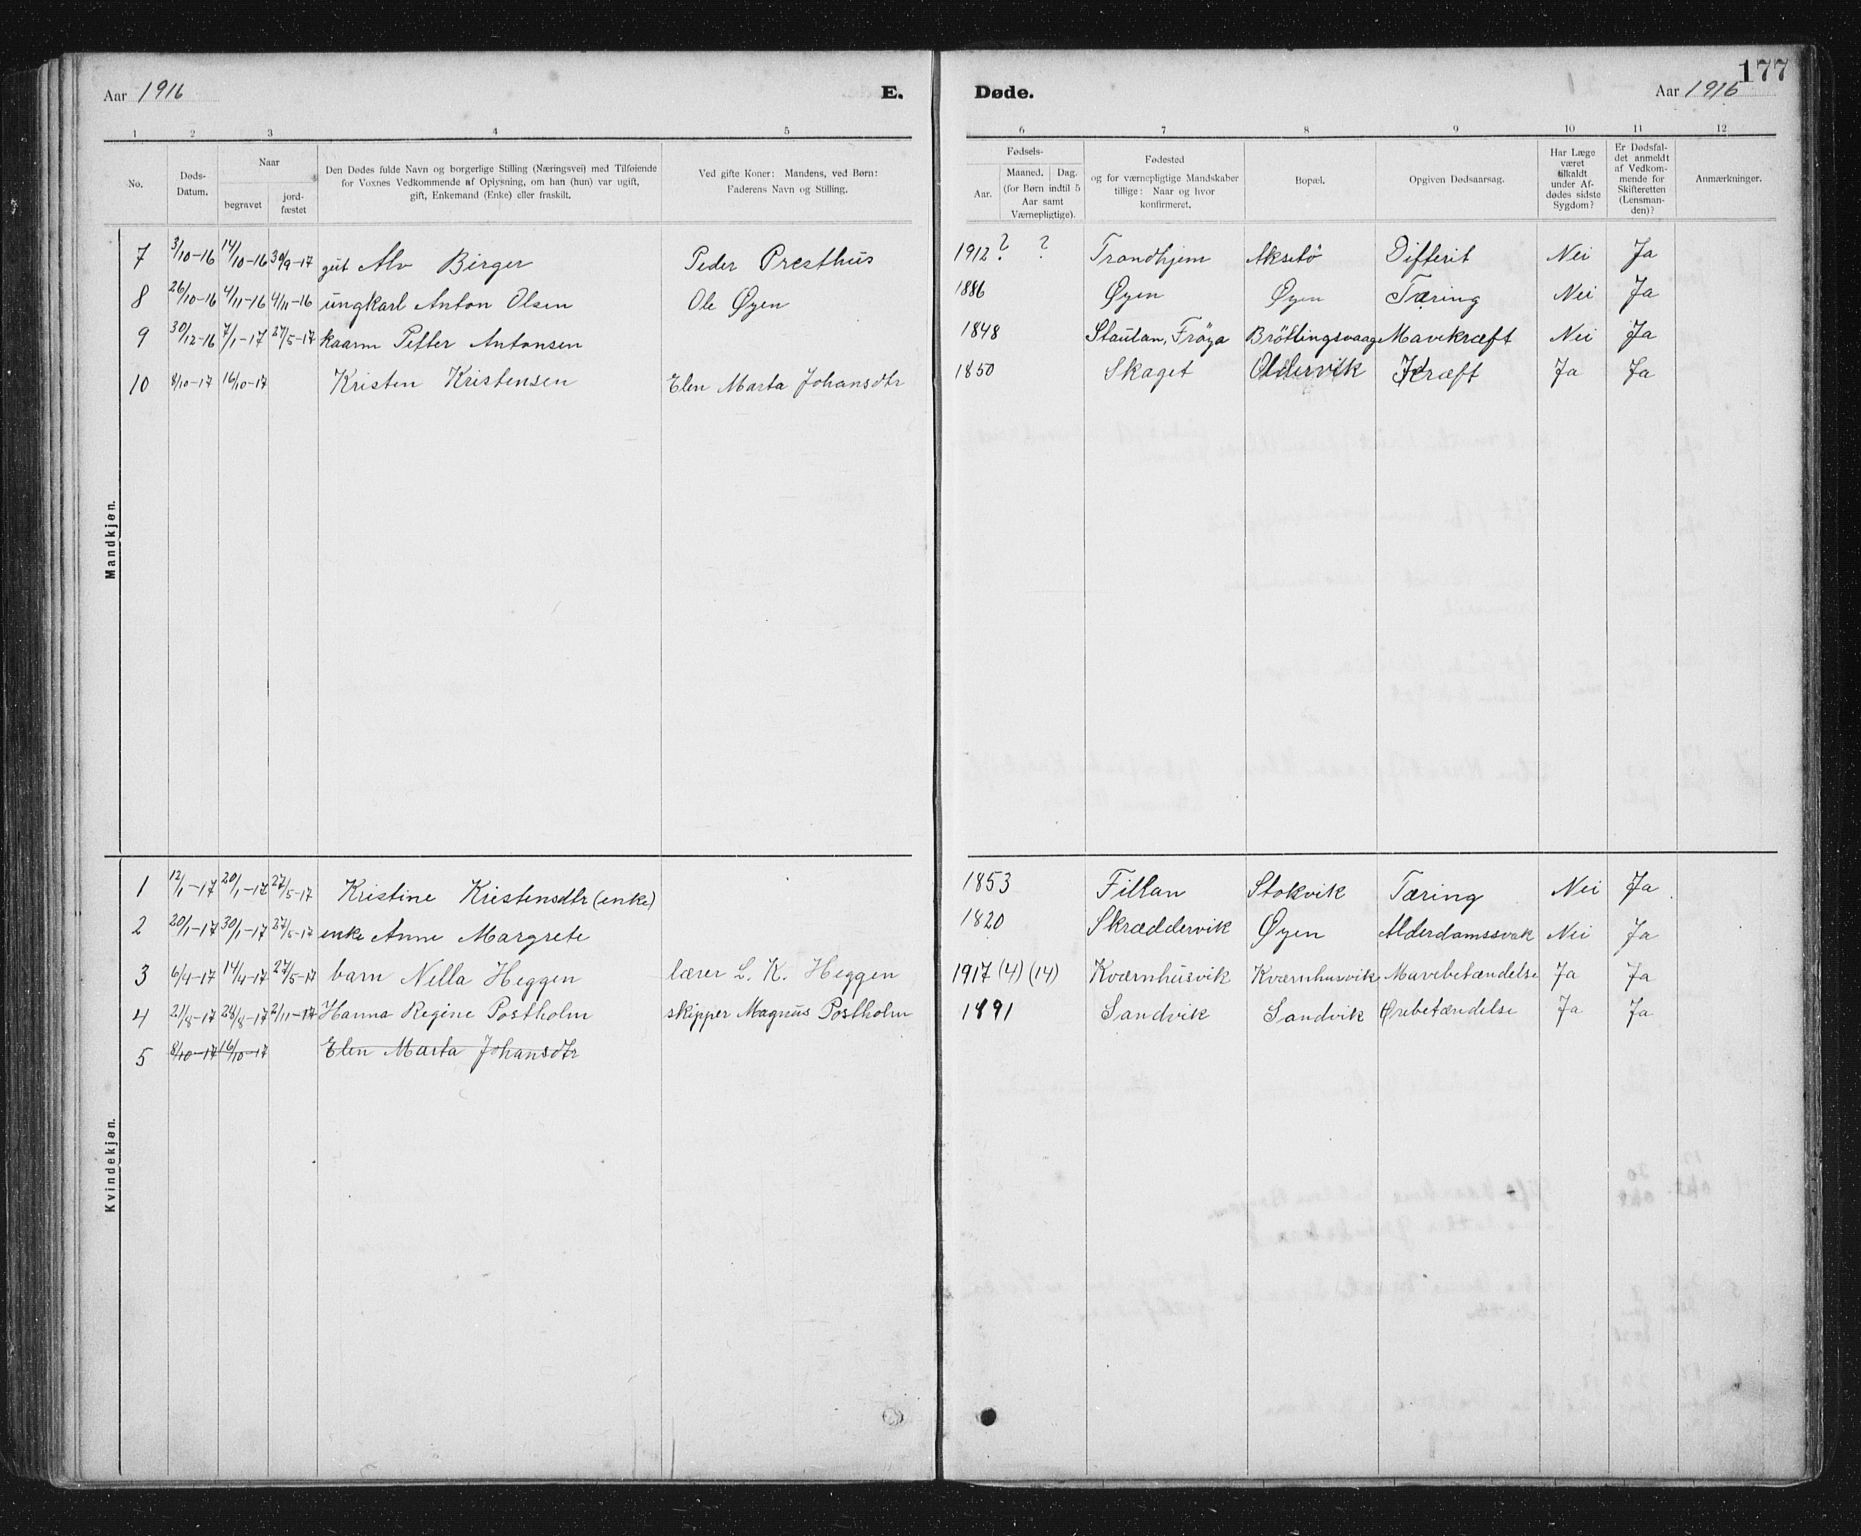 177
Aar 1916 E. Døde. Aar 1916
1 2 3 4 5 6 7 8 9 10 11 12
No.
Døds-Datum.
Naar
begravet
jord-fæstet
Den Dødes fulde Navn og borgerlige Stilling (Næringsvei) med Tilføiende
for Voxnes Vedkommende af Oplysning, om han (hun) var ugift,
gift, Enkemand (Enke) eller fraskilt.
Ved gifte Koner: Mandens, ved Børn:
Faderens Navn og Stilling.
Fødsels-
Aar.
Maaned. Dag.
(for Børn indtil 5
Aar samt
Værnepligtige).
Fødested
og for værnepligtige Mandskaber
tillige: Naar og hvor
konfirmeret.
Bopæl.
Opgiven Dødsaarsag.
Har Læge
været
tilkaldt
under Af-
dødes sidste
Sygdom?
Er Dødsfal-
det anmeldt
af Vedkom-
mende for
Skifteretten
(Lensman-
den)?
Anmærkninger.
Mandkjøn.
7 3/10-16 14/10-16 30/9-17 gut Alv Birger Peder Presthus 1912 ? ? Trondhjem Aksetø Difterit Nei Ja
8 26/10-16 4/11-16 4/11-16 ungkarl Anton Olsen Ole Øyen 1886 Øyen Øyen Tæring Nei Ja
9 30/12-16 7/1-17 27/5-17 kaarm Petter Antonsen 1848 Stautan, Frøya Brøttingsvaag Mavekræft Nei Ja
10 8/10-17 16/10-17 Kristen Kristensen Elen Marta Johansdtr 1850 Skaget Oldervik Kræft Ja Ja
Kvindekjøn.
1 12/1-17 20/1-17 27/5-17 Kristine Kristensdtr (enke) 1853 Fillan Stokvik Tæring Nei Ja
2 20/1-17 30/1-17 27/5-17 enke Anne Margrete 1820 Skræddervik Øyen Alderdamssvak Nei Ja
3 6/4-17 14/4-17 27/5-17 barn Nella Heggen lærer L. K. Heggen 1917 (4) (14) Kværnhusvik Kværnhusvik Mavebetændelse Ja Ja
4 21/8-17 28/8-17 2/11-17 Hanna Regine Postholm skipper Magnus Postholm 1891 Sandvik Sandvik Ørebetændelse Ja Ja
5 8/10-17 16/10-17 Elen Marta Johansdtr